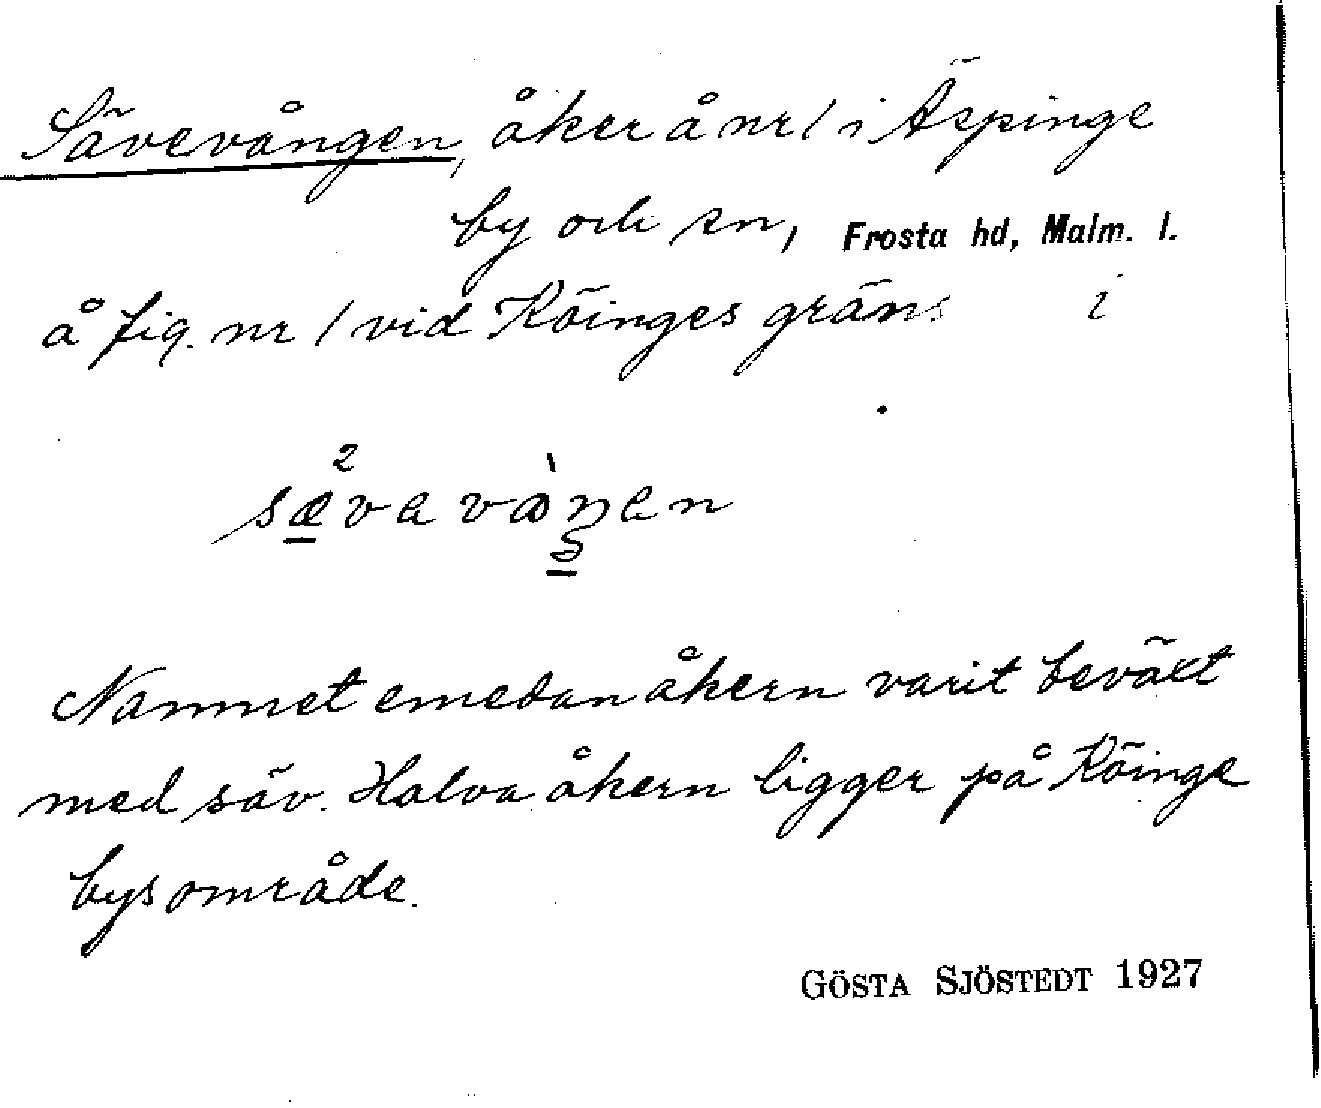 Sävevången, åker å nr 1 i Äspinge
by och sn, Frosta hd, Malm. l.
å fig. nr 1 vid Köinges gräns i
Namnet emedan åkern varit beväxt
med säv. Halva åkern ligger på Köinge
bys område.
GÖSTA SJÖSTEDT 1927